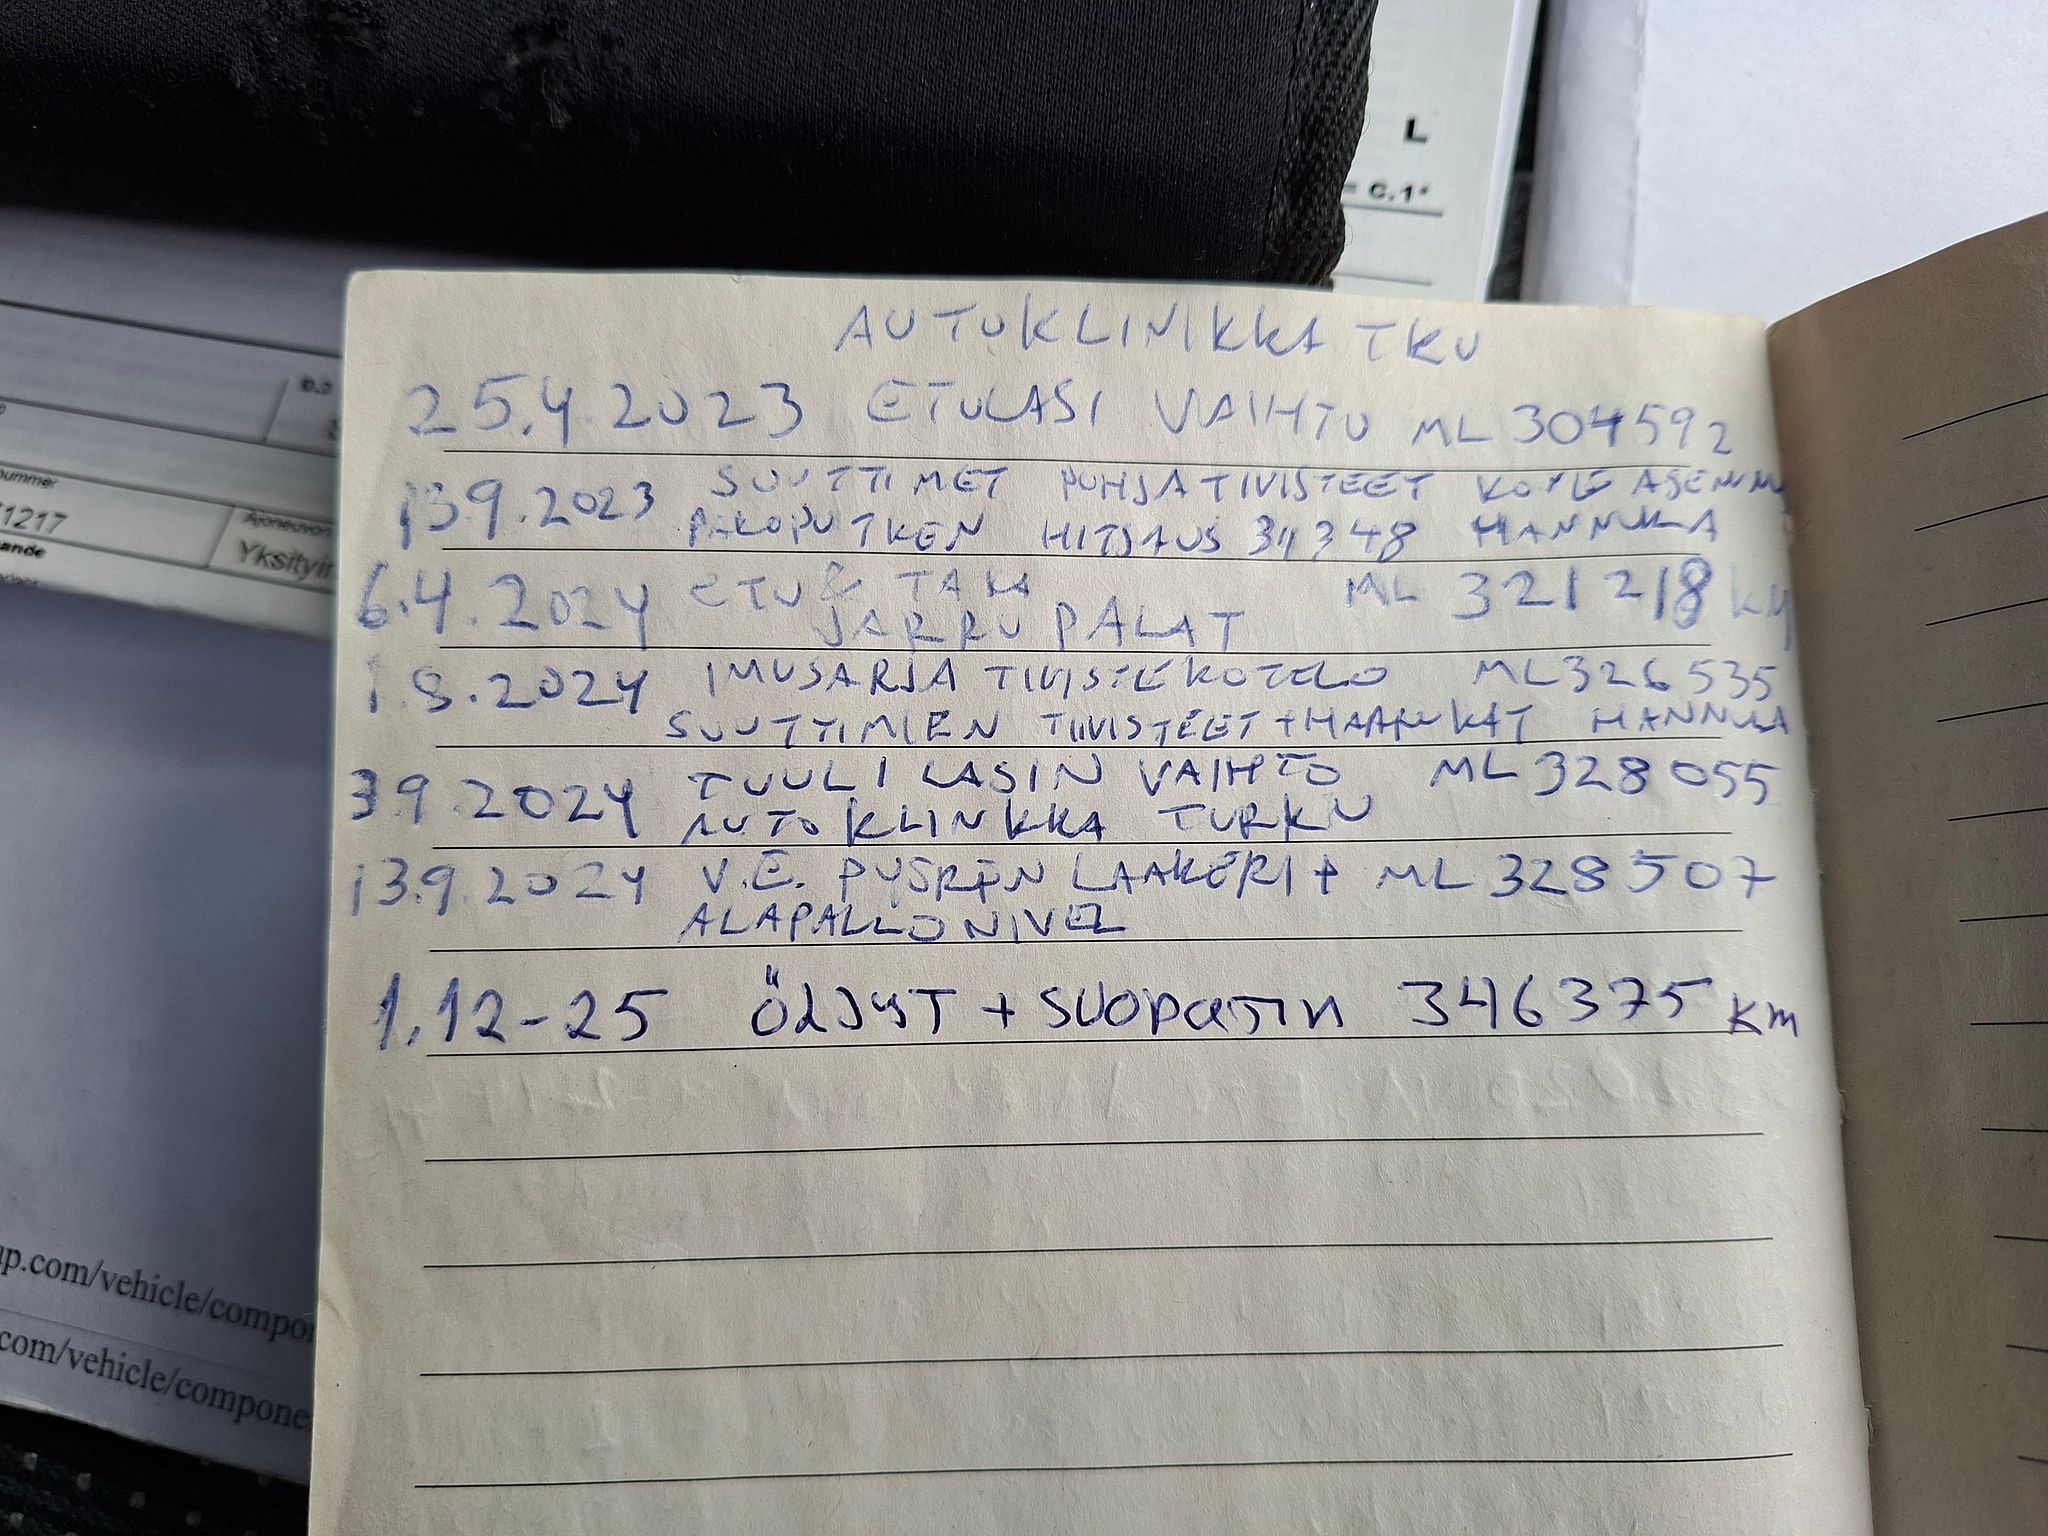 L
= C.1*
D.3
nummer
1217
Ajoneuvon
Yksityin
AUTOKLINIKKA TKU
25.4.2023 ETULASI VAIHTO ML 304592
13.9.2023 SUUTTIMET POHJATIIVISTEET KONE ASENNU
PAKOPUTKEN HITSAUS 311348 HANNULA
6.4.2024 ETU & TAKA ML 321218 KM
JARRU PALAT
1.8.2024 IMUSARJA TIIVISTEKOTELO ML 326535
SUUTTIMIEN TIIVISTEET + HAARUKAT HANNULA
3.9.2024 TUULILASIN VAIHTO ML 328055
AUTOKLINKKA TURKU
13.9.2024 V.E. PYÖRÄN LAAKERI + ML 328507
ALAPALLONIVEL
1.12-25 ÖLJYT + SUODATIN 346375 KM
up.com/vehicle/compo
com/vehicle/compone